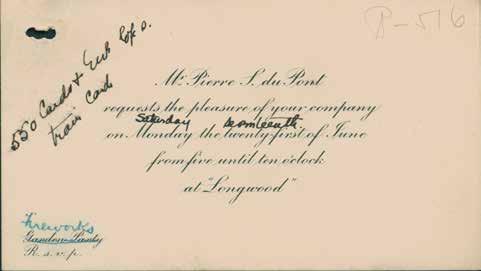 P-516
550 Cards & Env
train Cards
Mr. Pierre S. du Pont
requests the pleasure of your company
Saturday
on Monday the twenty-first of June
from five until ten o'clock
at "Longwood"
Fireworks
Garden Party
R. s. v. p.